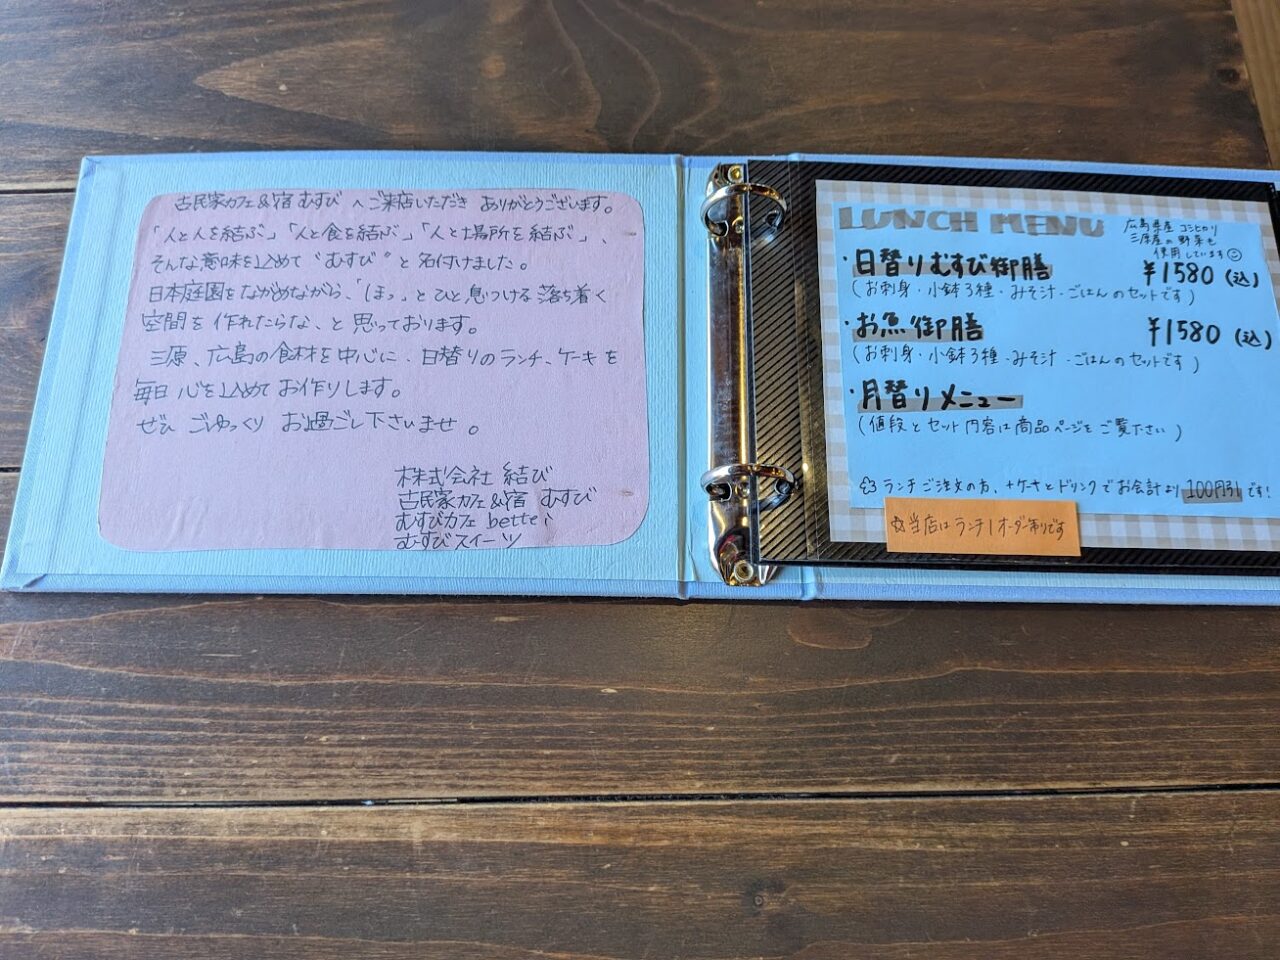 古民家カフェ&宿 むすび へご来店いただき ありがとうございます。
「人と人を結ぶ」「人と食を結ぶ」「人と場所を結ぶ」、
そんな意味を込めて “むすび” と名付けました。
日本庭園をながめながら、「ほっ」とひと息つける落ち着く
空間を作れたらな、と思っております。
三原、広島の食材を中心に、日替りのランチ、ケーキを
毎日 心を込めてお作りします。
ぜひ ごゆっくり お過ごし下さいませ。
株式会社 結び
古民家カフェ&宿 むすび
むすびカフェ better
むすびスイーツ
LUNCH MENU
広島県産 コシヒカリ
三原産の野菜を
使用しています☺
・日替りむすび御膳 ¥1580(込)
(お刺身・小鉢3種・みそ汁・ごはんのセットです)
・お魚御膳 ¥1580(込)
(お刺身・小鉢3種・みそ汁・ごはんのセットです)
・月替りメニュー
(値段とセット内容は商品ページをご覧下さい)
ランチご注文の方、+ケーキとドリンクでお会計より 100円引です!
☆当店はランチ1オーダー制です